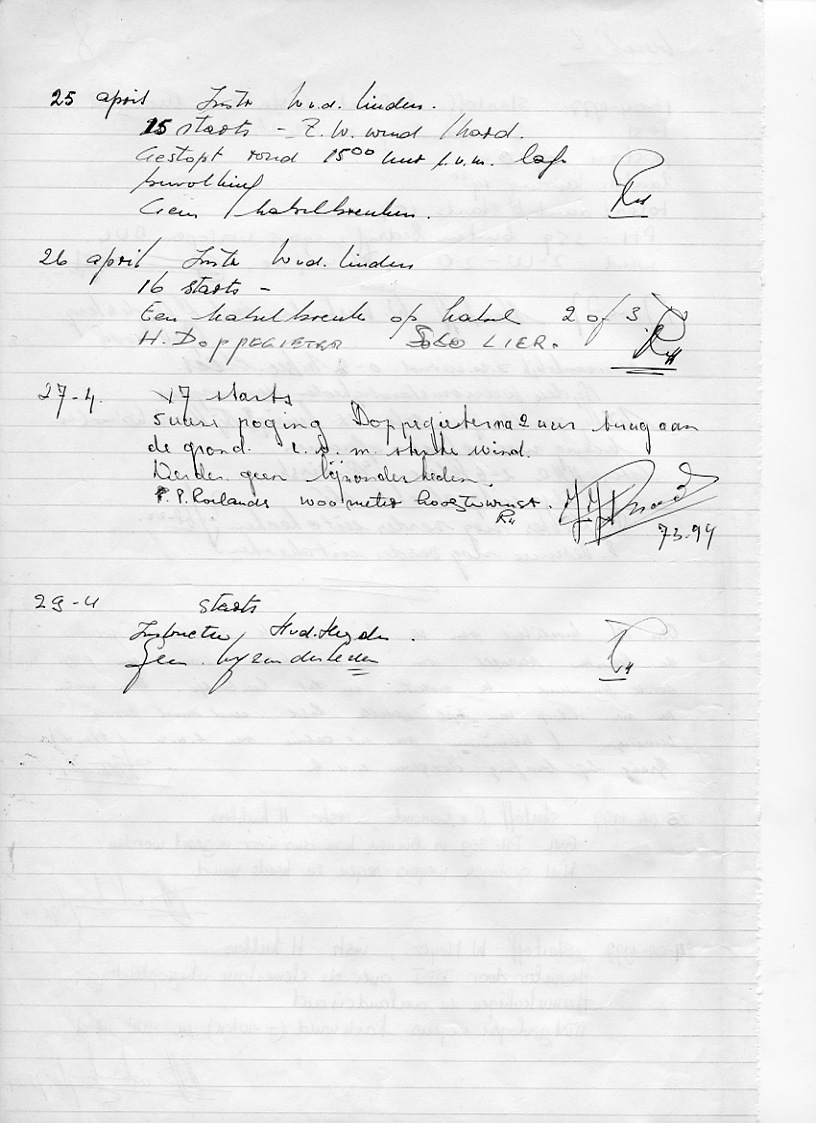 25 april Instr W.v.d. Linden.
15 starts - Z.W. wind / hard.
Gestopt rond 15⁰⁰ uur i.v.m. lage
bewolking
Geen kabelbreuken.
26 april Instr W.v.d. Linden
16 starts -
Een kabelbreuk op kabel 2 of 3.
H. Doppegieter Solo LIER.
27-4. 17 starts
5 uurs poging Doppegieter na 2 uur terug aan
de grond. i.v.m. sterke wind.
Verder geen bijzonderheden.
P.P. Roelands 1000 meter hoogtewinst.
73-94
29-4 starts
Instructeur H.v.d. Heyden.
Geen bijzonderheden